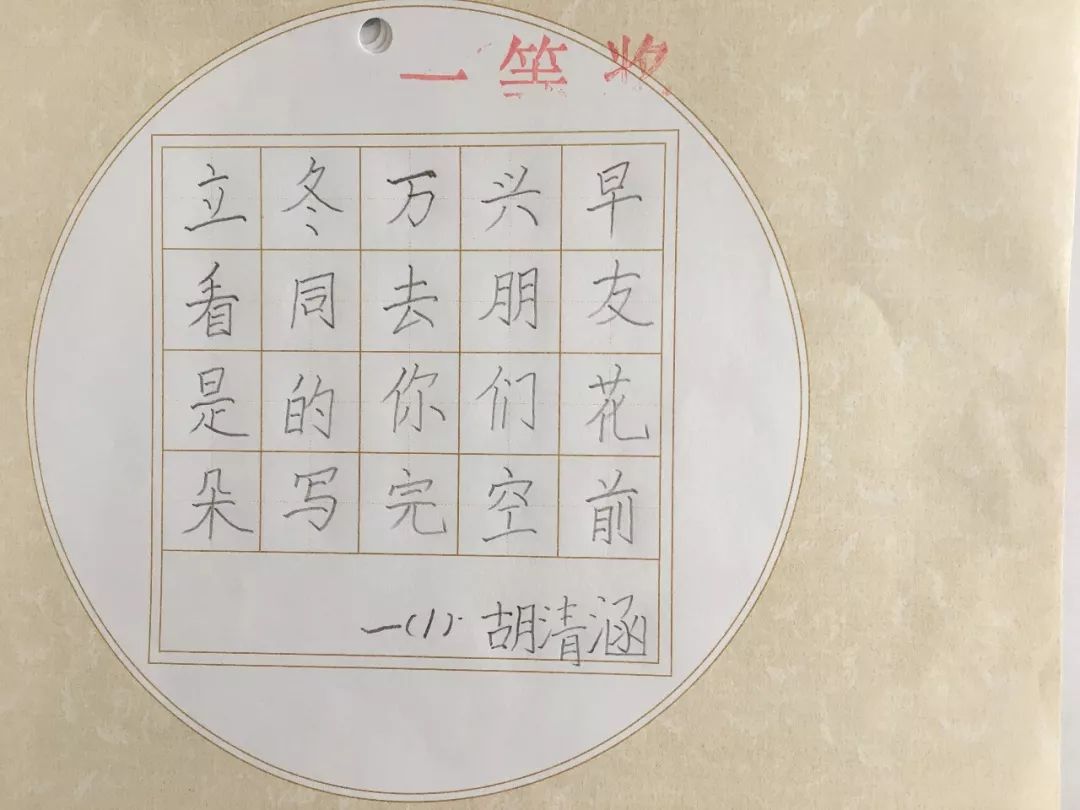 一等奖
立冬万兴早
看同去朋友
是的你们花
朵写完空前
一(1)胡清涵